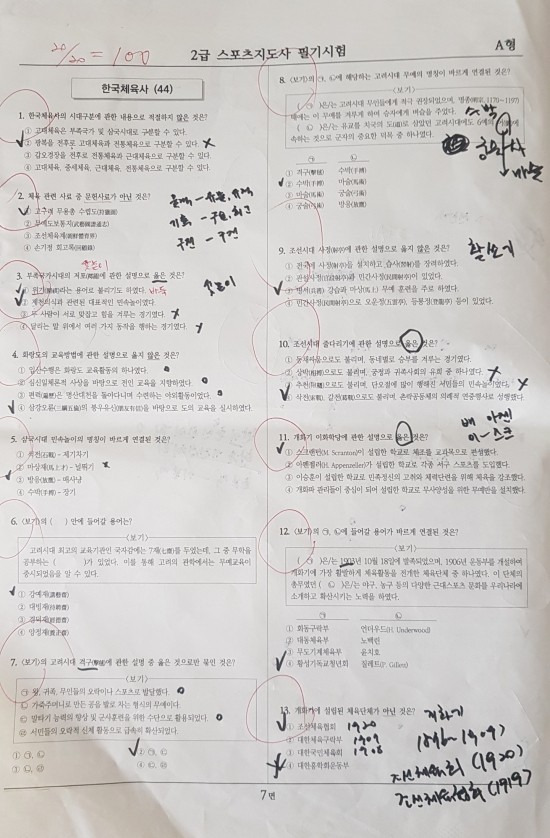 20/20 = 100
2급 스포츠지도사 필기시험
A형
한국체육사 (44)
1. 한국체육사의 시대구분에 관한 내용으로 적절하지 않은 것은?
① 고대체육은 부족국가 및 삼국시대로 구분할 수 있다.
② 광복을 전후로 고대체육과 전통체육으로 구분할 수 있다.
③ 갑오경장을 전후로 전통체육과 근대체육으로 구분할 수 있다.
④ 고대체육, 중세체육, 근대체육, 전통체육으로 구분할 수 있다.
2. 체육 관련 사료 중 문헌사료가 아닌 것은?
① 고구려 무용총 수렵도(狩獵圖)
② 무예도보통지(武藝圖譜通志)
③ 조선체육계(朝鮮體育界)
④ 손기정 회고록(回顧錄)
구전 - 구전
3. 부족국가시대의 저포(樗蒲)에 관한 설명으로 옳은 것은?
윷놀이
① 위기(圍棋)라는 용어로 불리기도 하였다. 바둑
② 제천의식과 관련된 대표적인 민속놀이였다.
③ 두 사람이 서로 맞잡고 힘을 겨루는 경기였다.
④ 달리는 말 위에서 여러 가지 동작을 행하는 경기였다.
4. 화랑도의 교육방법에 관한 설명으로 옳지 않은 것은?
① 입산수행은 화랑도 교육활동의 하나였다.
② 심신일체론적 사상을 바탕으로 전인 교육을 지향하였다.
③ 편력(遍歷)은 명산대천을 돌아다니며 수련하는 야외활동이었다.
④ 삼강오륜(三綱五倫)의 붕우유신(朋友有信)을 바탕으로 도의 교육을 실시하였다.
5. 삼국시대 민속놀이의 명칭이 바르게 연결된 것은?
① 석전(石戰) - 제기차기
② 마상재(馬上才) - 널뛰기
③ 방응(放鷹) - 매사냥
④ 수박(手搏) - 장기
6. 〈보기〉의 ( ) 안에 들어갈 용어는?
〈보기〉
고려시대 최고의 교육기관인 국자감에는 7재(七齋)를 두었는데, 그 중 무학을
공부하는 ( )가 있었다. 이를 통해 고려의 관학에서는 무예교육이
중시되었음을 알 수 있다.
① 강예재(講藝齋)
② 대빙재(待聘齋)
③ 경덕재(經德齋)
④ 양정재(養正齋)
7. 〈보기〉의 고려시대 격구(擊毬)에 관한 설명 중 옳은 것으로만 묶인 것은?
〈보기〉
㉠ 왕, 귀족, 무인들의 오락이나 스포츠로 발달했다.
㉡ 가죽주머니로 만든 공을 발로 차는 형식의 무예이다.
㉢ 말타기 능력의 향상 및 군사훈련을 위한 수단으로 활용되었다.
㉣ 서민들의 오락적 신체 활동으로 급속히 확산되었다.
① ㉠, ㉡ ② ㉠, ㉢
③ ㉡, ㉣ ④ ㉢, ㉣
8. 〈보기〉의 ㉠, ㉡에 해당하는 고려시대 무예의 명칭이 바르게 연결된 것은?
〈보기〉
( ㉠ )은/는 고려시대 무인들에게 적극 권장되었으며, 명종(明宗, 1170~1197)
때에는 이 무예를 겨루게 하여 승자에게 벼슬을 주었다.
( ㉡ )은/는 유교를 치국의 도(道)로 삼았던 고려시대에도 6예의
속하는 것으로 군자의 중요한 덕목 중 하나였다.
㉠ ㉡
① 격구(擊毬) 수박(手搏)
② 수박(手搏) 마술(馬術)
③ 마술(馬術) 궁술(弓術)
④ 궁술(弓術) 방응(放鷹)
9. 조선시대 사정(射亭)에 관한 설명으로 옳지 않은 것은?
활쏘기
① 전국에 사정(射亭)을 설치하고 습사(習射)를 장려하였다.
② 관설사정(官設射亭)과 민간사정(民間射亭)이 있었다.
③ 병서(兵書) 강습과 마상(馬上) 무예 훈련을 주로 하였다.
④ 민간사정(民間射亭)으로 오운정(五雲亭), 등룡정(登龍亭) 등이 있었다.
10. 조선시대 줄다리기에 관한 설명으로 옳은 것은?
① 동채싸움으로도 불리며, 동네별로 승부를 겨루는 경기였다.
② 상박(相撲)으로도 불리며, 궁정과 귀족사회의 유희 중 하나였다.
③ 추천(鞦韆)으로도 불리며, 단오절에 많이 행해진 서민들의 민속놀이였다.
④ 삭전(索戰), 갈전(葛戰)으로도 불리며, 촌락공동체의 의례적 연중행사로 성행했다.
11. 개화기 이화학당에 관한 설명으로 옳은 것은?
배 아펜
이-스크
① 스크랜턴(M. Scranton)이 설립한 학교로 체조를 교과목으로 편성했다.
② 아펜젤러(H. Appenzeller)가 설립한 학교로 각종 서구 스포츠를 도입했다.
③ 이승훈이 설립한 학교로 민족정신의 고취와 체력단련을 위해 체육을 강조했다.
④ 개화파 관리들이 중심이 되어 설립한 학교로 무사양성을 위한 무예반을 설치했다.
12. 〈보기〉의 ㉠, ㉡에 들어갈 용어가 바르게 연결된 것은?
〈보기〉
( ㉠ )은/는 1903년 10월 18일에 발족되었으며, 1906년 운동부를 개설하여
개화기에 가장 활발하게 체육활동을 전개한 체육단체 중 하나였다. 이 단체의
총무였던 ( ㉡ )은/는 야구, 농구 등의 다양한 근대스포츠 문화를 우리나라에
소개하고 확산시키는 노력을 하였다.
㉠ ㉡
① 회동구락부 언더우드(H. Underwood)
② 대동체육부 노백린
③ 무도기계체육부 윤치호
④ 황성기독교청년회 질레트(P. Gillett)
13. 개화기에 설립된 체육단체가 아닌 것은?
① 조선체육협회
② 대한체육구락부
③ 대한국민체육회
④ 대한흥학회운동부
개화기
7면